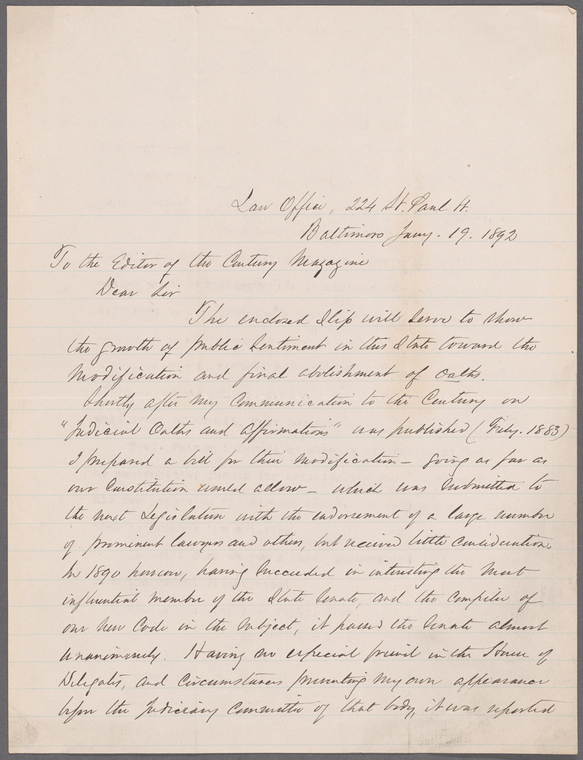 Law Office, 224 St. Paul St.
Baltimore Jany. 19. 1892
To the Editor of the Century Magazine
Dear Sir
The enclosed slip will serve to show
the growth of public sentiment in this State toward the
modification and final abolishment of oaths.
Shortly after my communication to the Century on
"Judicial Oaths and Affirmations" was published (Feby. 1883)
I prepared a bill for their modification — going as far as
our Constitution would allow — which was submitted to
the next Legislature with the endorsement of a large number
of prominent lawyers and others, but received little consideration.
In 1890 however, having succeeded in interesting the most
influential member of the State Senate, and the compiler of
our new Code in the subject, it passed the Senate almost
unanimously. Having no especial friend in the House of
Delegates, and circumstances preventing my own appearance
before the Judiciary Committee of that body, it was reported